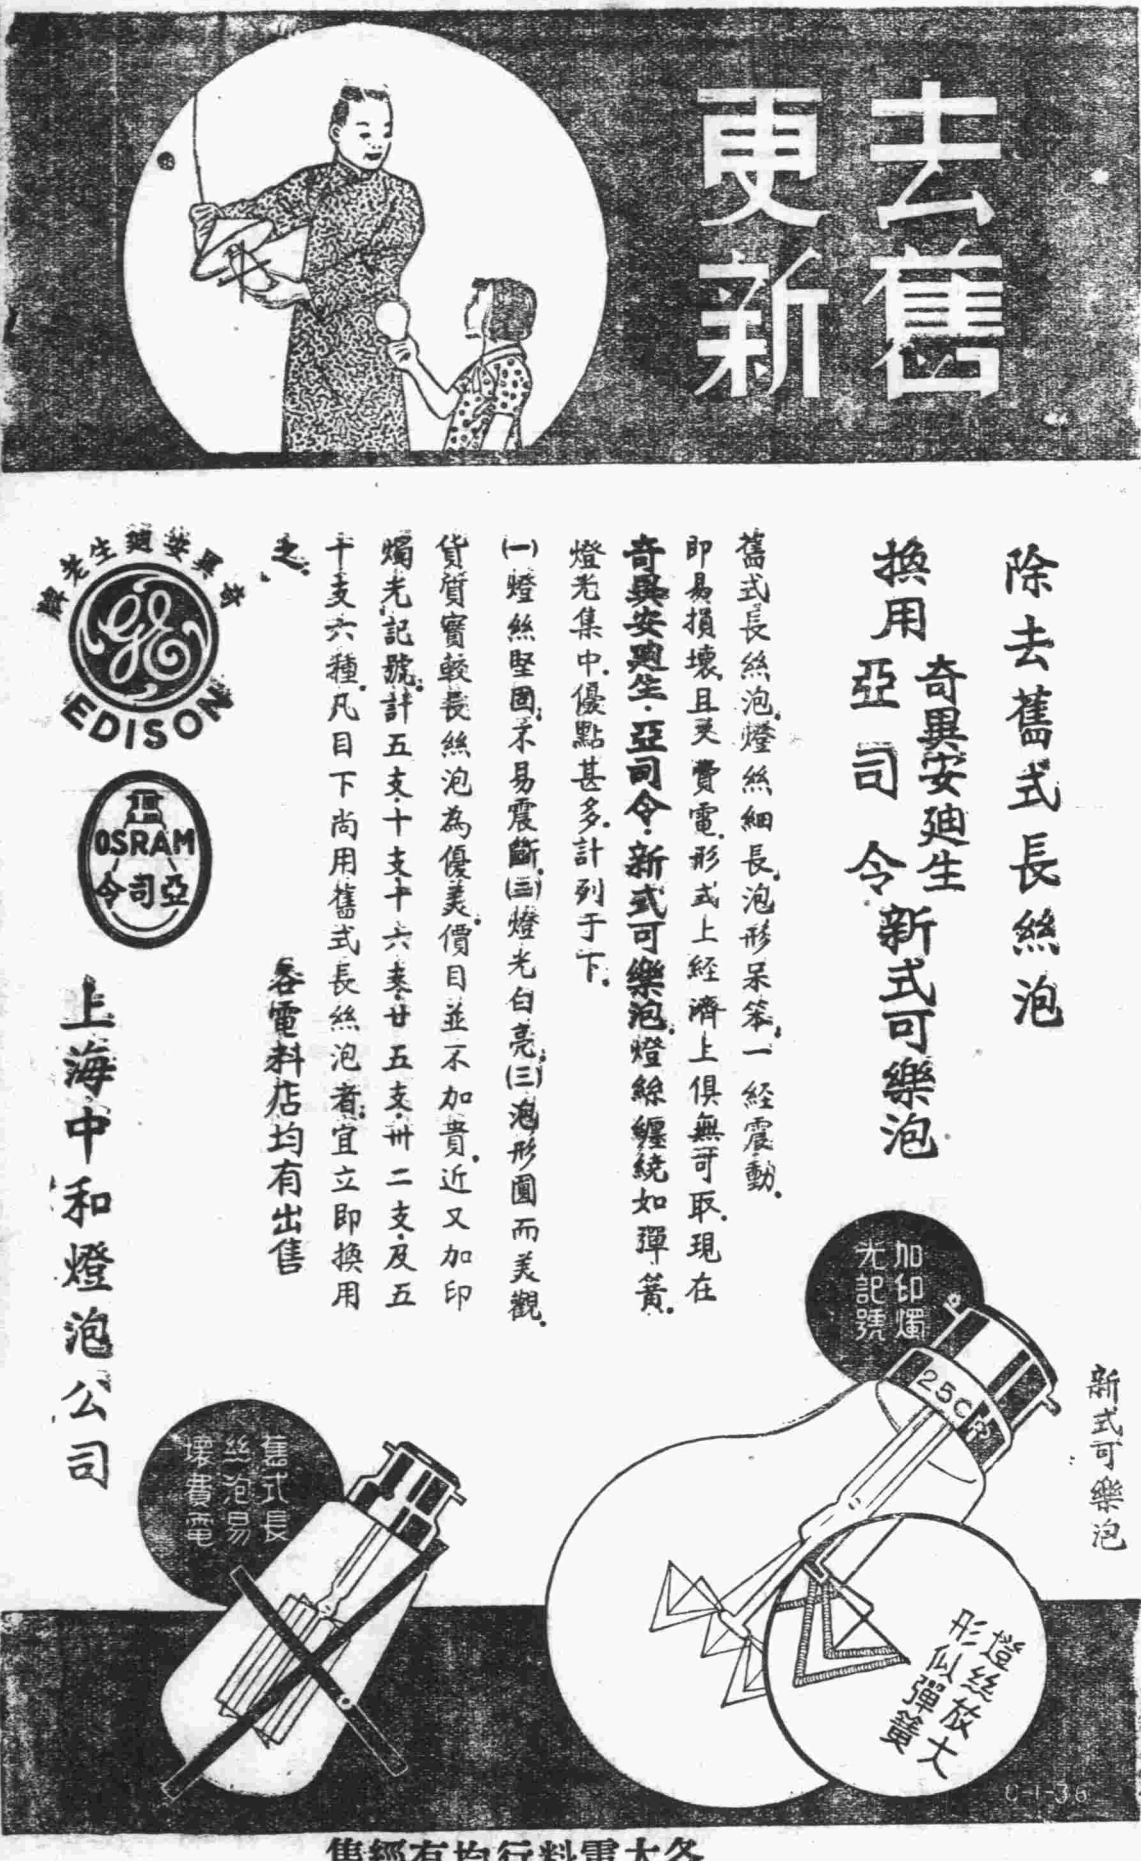 去舊
更新
除去舊式長絲泡
換用奇異安迪生亞司令新式可樂泡
舊式長絲泡.燈絲細長.泡形呆笨.一經震動.
即易損壞.且又費電.形式上經濟上俱無可取.現在
奇異安迪生.亞司令.新式可樂泡.燈絲纏繞如彈簧.
燈光集中.優點甚多.計列于下.
(一)燈絲堅固.不易震斷.(二)燈光白亮.(三)泡形圓而美觀.
貨質實較長絲泡為優美.價目並不加貴.近又加印
燭光記號.計五支.十支十六支.廿五支.卅二支.及五
十支六種.凡目下尚用舊式長絲泡者.宜立即換用
之.
各電料店均有出售
奇異安迪生老牌
GE
EDISON
OSRAM
亞司令
上海中和燈泡公司
加印燭
光記號
25C支
新式可樂泡
燈絲放大
形似彈簧
舊式長
絲泡易
壞費電
C-1-36
各大電料行均有經售